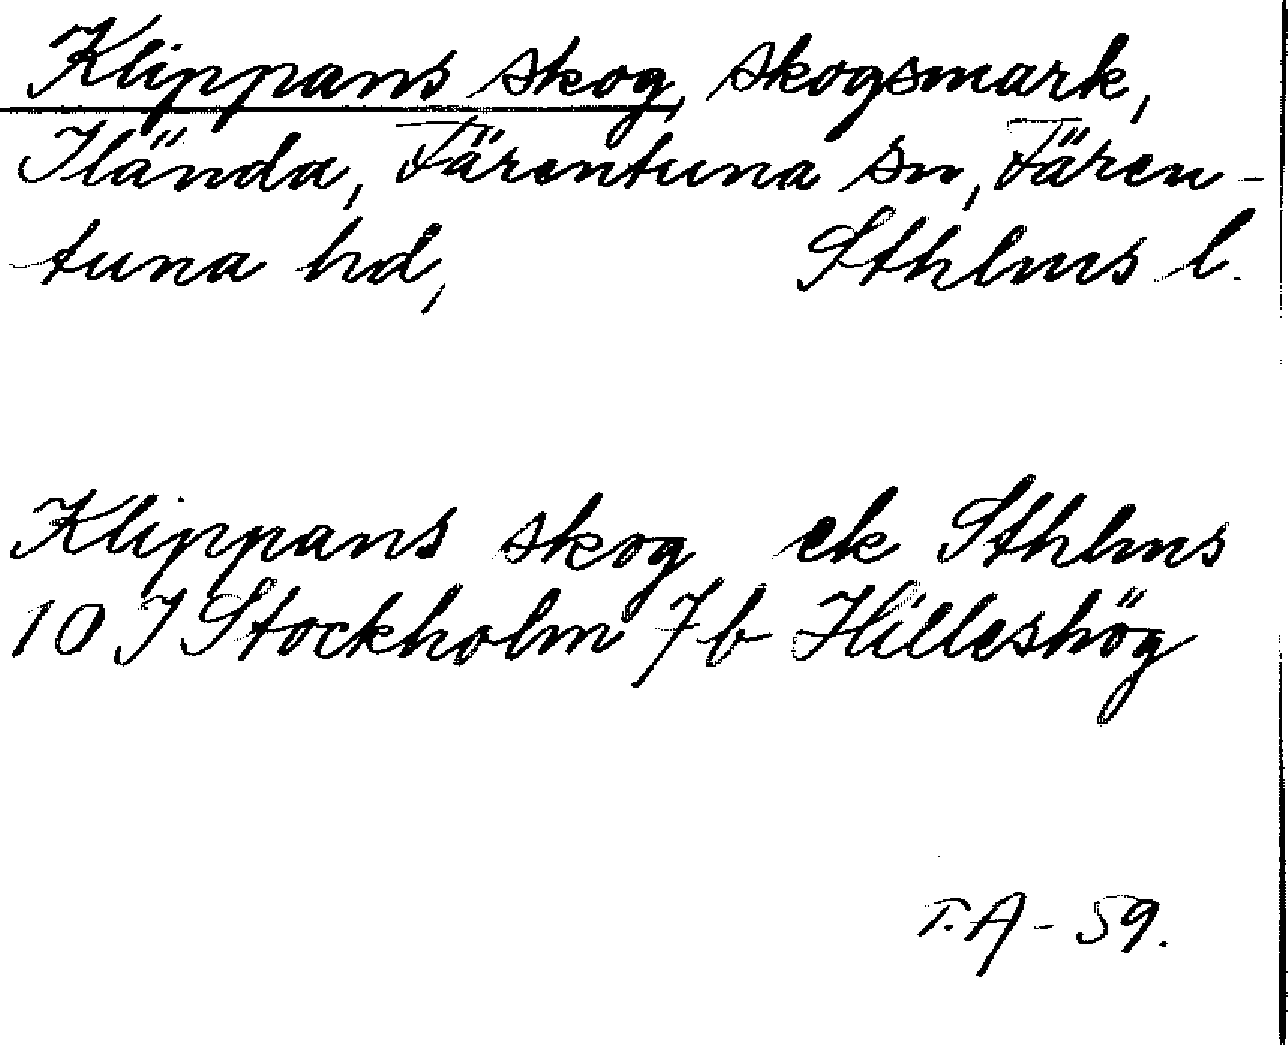 Klippans skog, skogsmark,
Ilända, Färentuna sn, Fären-
tuna hd, Sthlms l.
Klippans skog ek Sthlms
10 I Stockholm 7b Hilleshög
T.A-59.